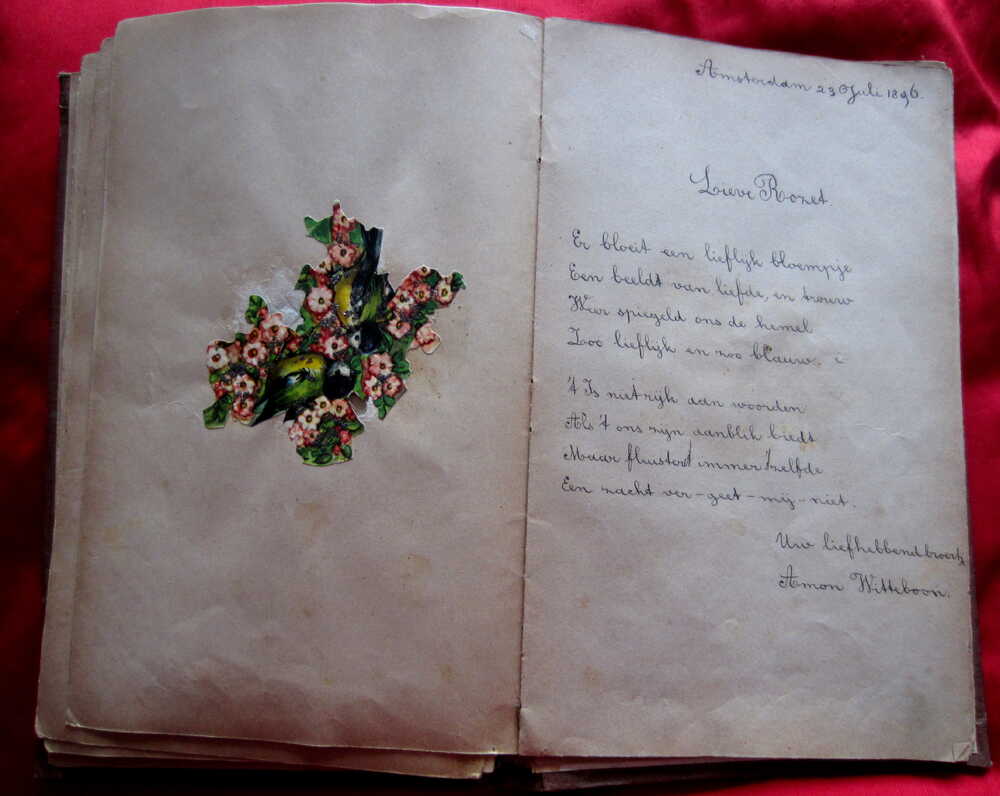 Amsterdam 23 Juli 1896.
Lieve Rozet.
Er bloeit een lieflijk bloempje
Een beeldt van liefde, en trouw
Weer spiegeld ons de hemel
Zoo lieflijk en zoo blauw.
't Is niet rijk aan woorden
Als 't ons zijn aanblik biedt
Maar fluistert immer 'tzelfde
Een zacht ver-geet-mij-niet.
Uw liefhebbend broertje
Amon Witteboon.